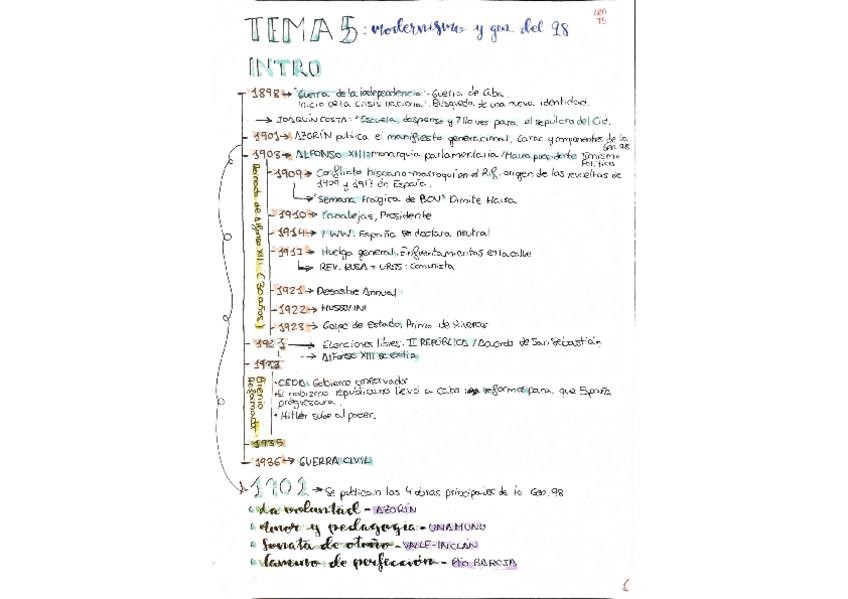 TEMA 5: modernismo y gen del 98
INTRO
1898 → "Guerra de la independencia" - Guerra de Cuba.
Inicio de la crisis nacional. Búsqueda de una nueva identidad.
→ JOAQUÍN COSTA: "Escuela, despensa y 7 llaves para el sepulcro del Cid.
1901 → AZORÍN publica el manifiesto generacional. Carac y componentes de la
Gen. 98
1903 → ALFONSO XIII: monarquía parlamentaria / Maura presidente
Turnismo
Político
Reinado de Alfonso XIII (30 años)
1909 → Conflicto hispano-marroquí en el Rif, origen de las revueltas de
1909 y 1917 en España.
→ "Semana trágica de BCN" Dimite Maura
1910 → Canalejas, Presidente
1914 → I WW: España se declara neutral
1917 → Huelga general. Enfrentamientos en la calle
→ REV. RUSA → URSS: Comunista
1921 → Desastre Annual
1922 → MUSSOLINI
1923 → Golpe de Estado: Primo de Riveras
→ Elecciones libres: II REPÚBLICA / Acuerdo de San Sebastián
→ Alfonso XIII se exilia
Bienio
Reformador
· CEDA: Gobierno conservador
· El gobierno republicano llevó a cabo reformas para que España
progresara.
· Hitler sube al poder.
1935
1936 → GUERRA CIVIL
1902 → Se publican las 4 obras principales de la Gen. 98
La voluntad - AZORÍN
Amor y pedagogía - UNAMUNO
Sonata de otoño - VALLE-INCLÁN
Camino de perfección - Pío BAROJA
1